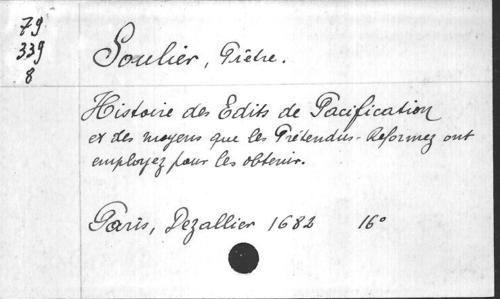 79
339
8
Soulier, Prêtre.
Histoire des Edits de Pacification
et des moyens que les Prétendus-Reformez ont
employez pour les obtenir.
Paris, Dezallier 1682 16°